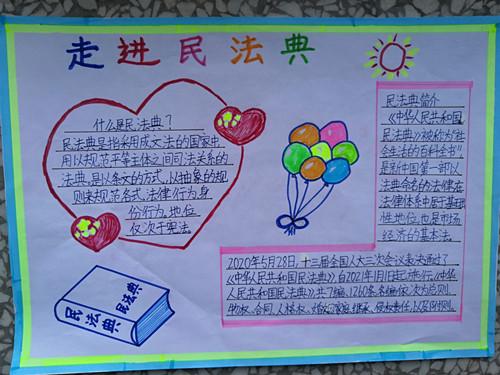 走进民法典
什么是民法典？
民法典是指采用成文法的国家中，
用以规范平等主体之间司法关系的
法典，是以条文的方式，以抽象的规
则来规范各式法律行为身
份行为，地位
仅次于宪法。
民法典
民法典
民法典简介
《中华人民共和国
民法典》被称为"社
会生活的百科全书"，
是新中国第一部以
法典命名的法律，在
法律体系中居于基础
性地位，也是市场
经济的基本法。
2020年5月28日，十三届全国人大三次会议表决通过了
《中华人民共和国民法典》，自2021年1月1日起施行。《中华
人民共和国民法典》共7编、1260条，各编依次为总则、
物权、合同、人格权、婚姻家庭、继承、侵权责任，以及附则。